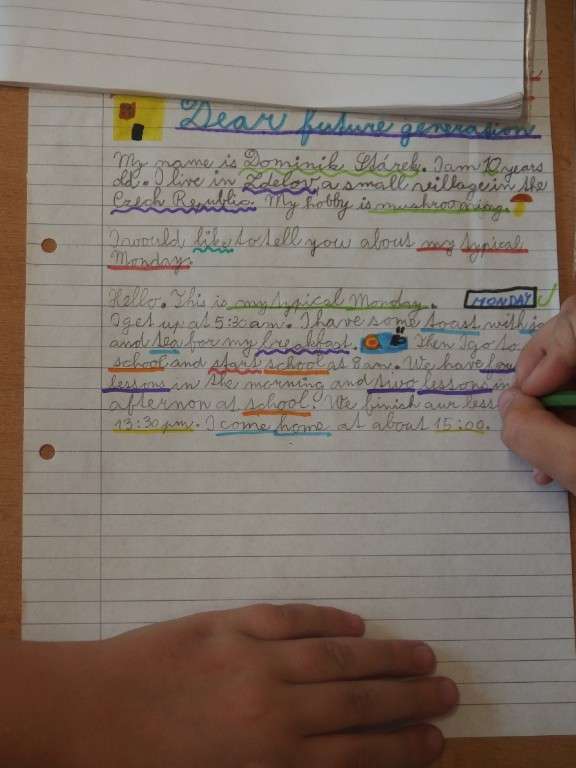 Dear future generation
My name is Dominik Stárek. I am 10 years
old. I live in Zdelov, a small village in the
Czech Republic. My hobby is mushrooming.
I would like to tell you about my typical
Monday.
Hello. This is my typical Monday. MONDAY
I get up at 5:30am. I have some toast with
and tea for my breakfast. Then I go to
school and start school at 8am. We have
lessons in the morning and two lessons in
afternoon at school. We finish aur
13:30pm. I come home at about 15:00.